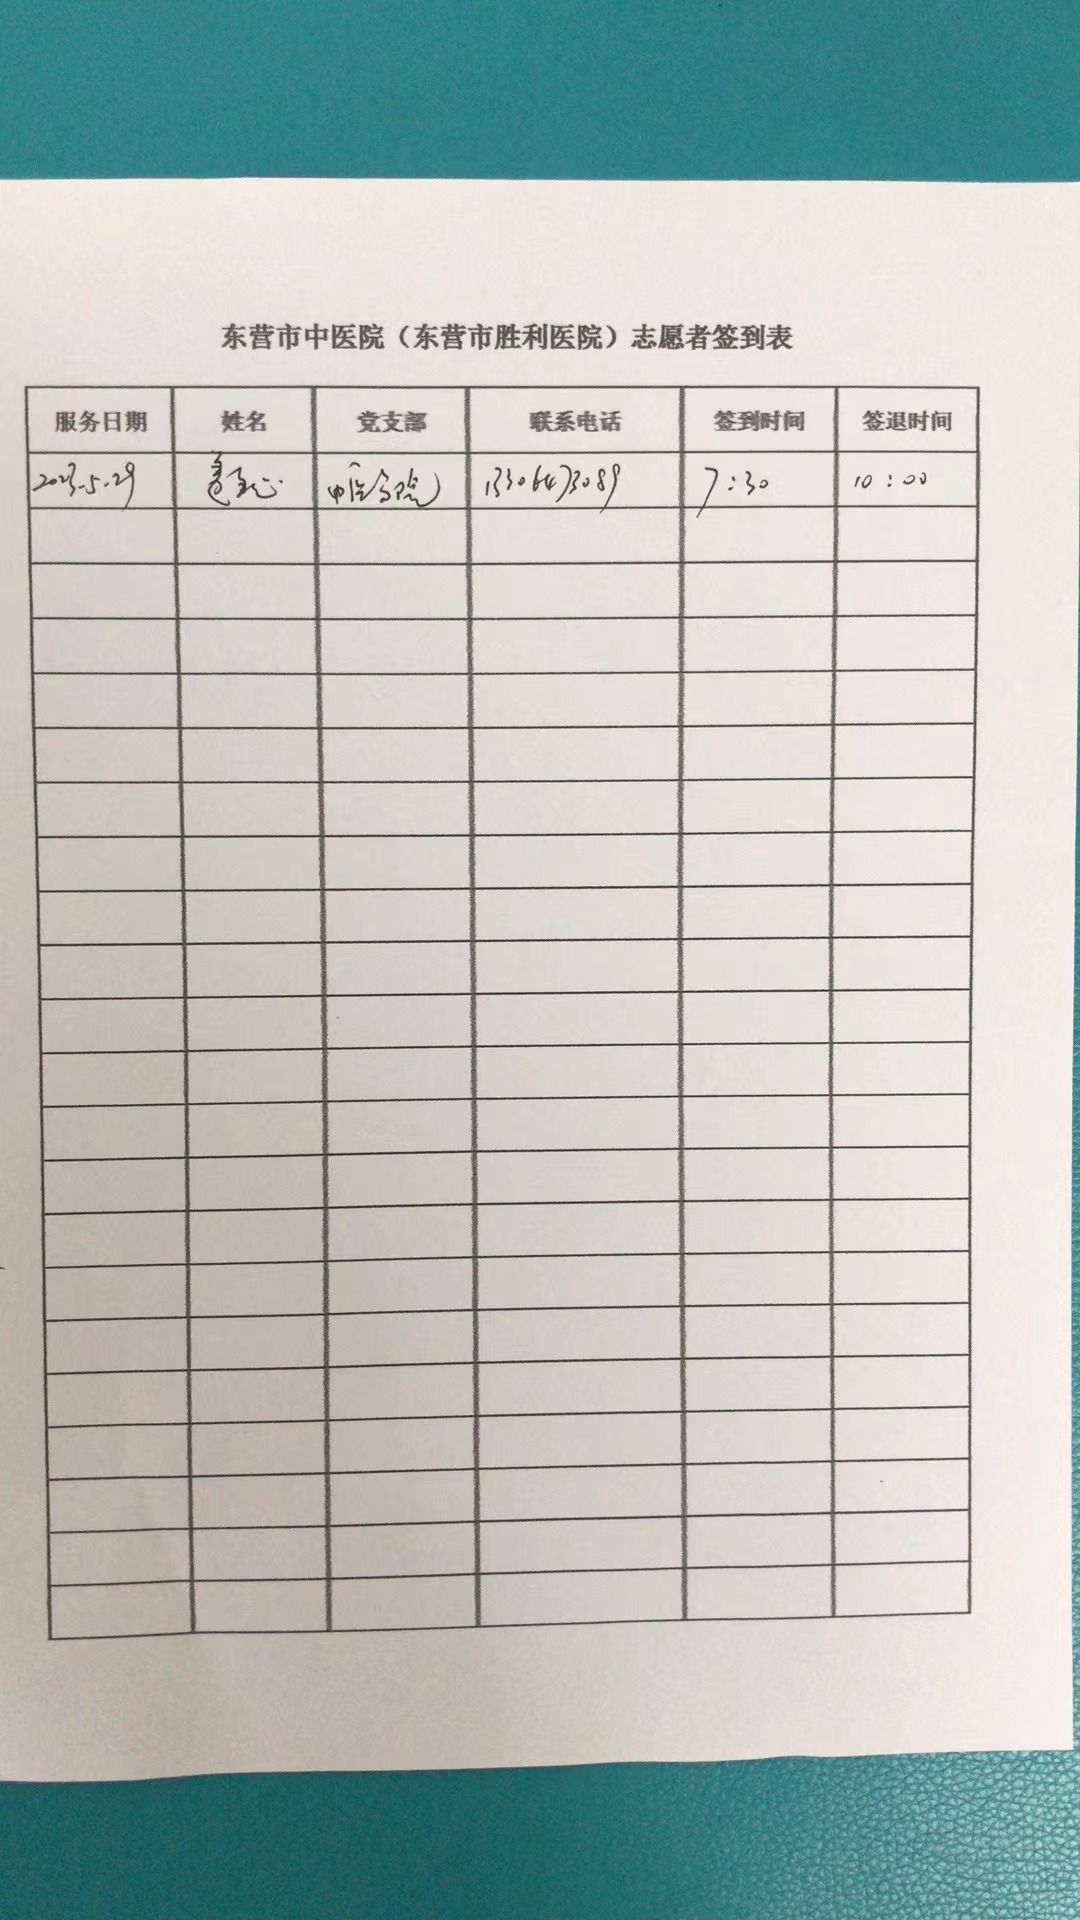 东营市中医院（东营市胜利医院）志愿者签到表
服务日期 姓名 党支部 联系电话 签到时间 签退时间
2023.5.29 13306473089 7:30 10:00